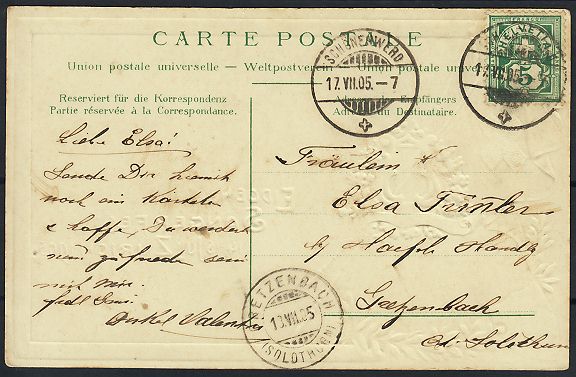 CARTE POSTALE
Union postale universelle — Weltpostverein — Union postale universelle
Reserviert für die Korrespondenz
Partie réservée à la Correspondance.
Adresse des Empfängers
Adresse du Destinataire.
SCHÖNENWERD
17.VII.05.-7
HELVETIA
FRANCO
5
17.VII.05.-7
Liebe Elsa!
Sende Dir hiemit
noch ein Kärtchen
& hoffe, Du werdest
nun zufrieden sein
mit mir.
Onkel Valentin
Fräulein
Elsa
Handlg
Gretzenbach
Ct. Solothurn
GRETZENBACH
18.VII.05
(SOLOTHURN)